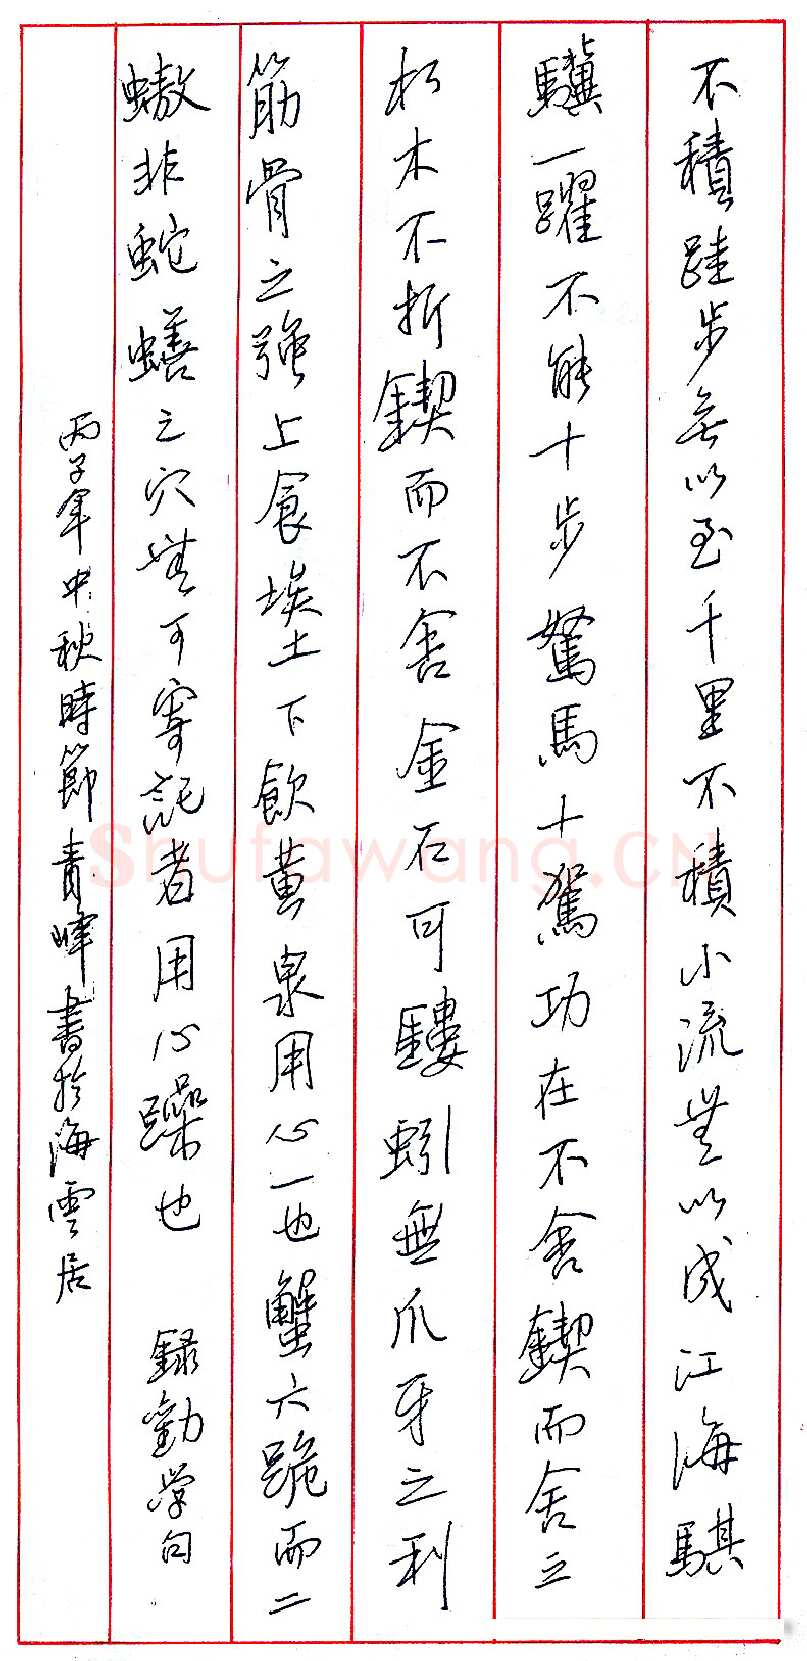 不積跬步無以至千里不積小流無以成江海騏
驥一躍不能十步駑馬十駕功在不舍鍥而舍之
朽木不折鍥而不舍金石可鏤蚓無爪牙之利
筋骨之強上食埃土下飲黃泉用心一也蟹六跪而二
螯非蛇蟮之穴無可寄託者用心躁也 録勸学句
丙子年中秋時節青峰書於海雲居
Shufawang.CN